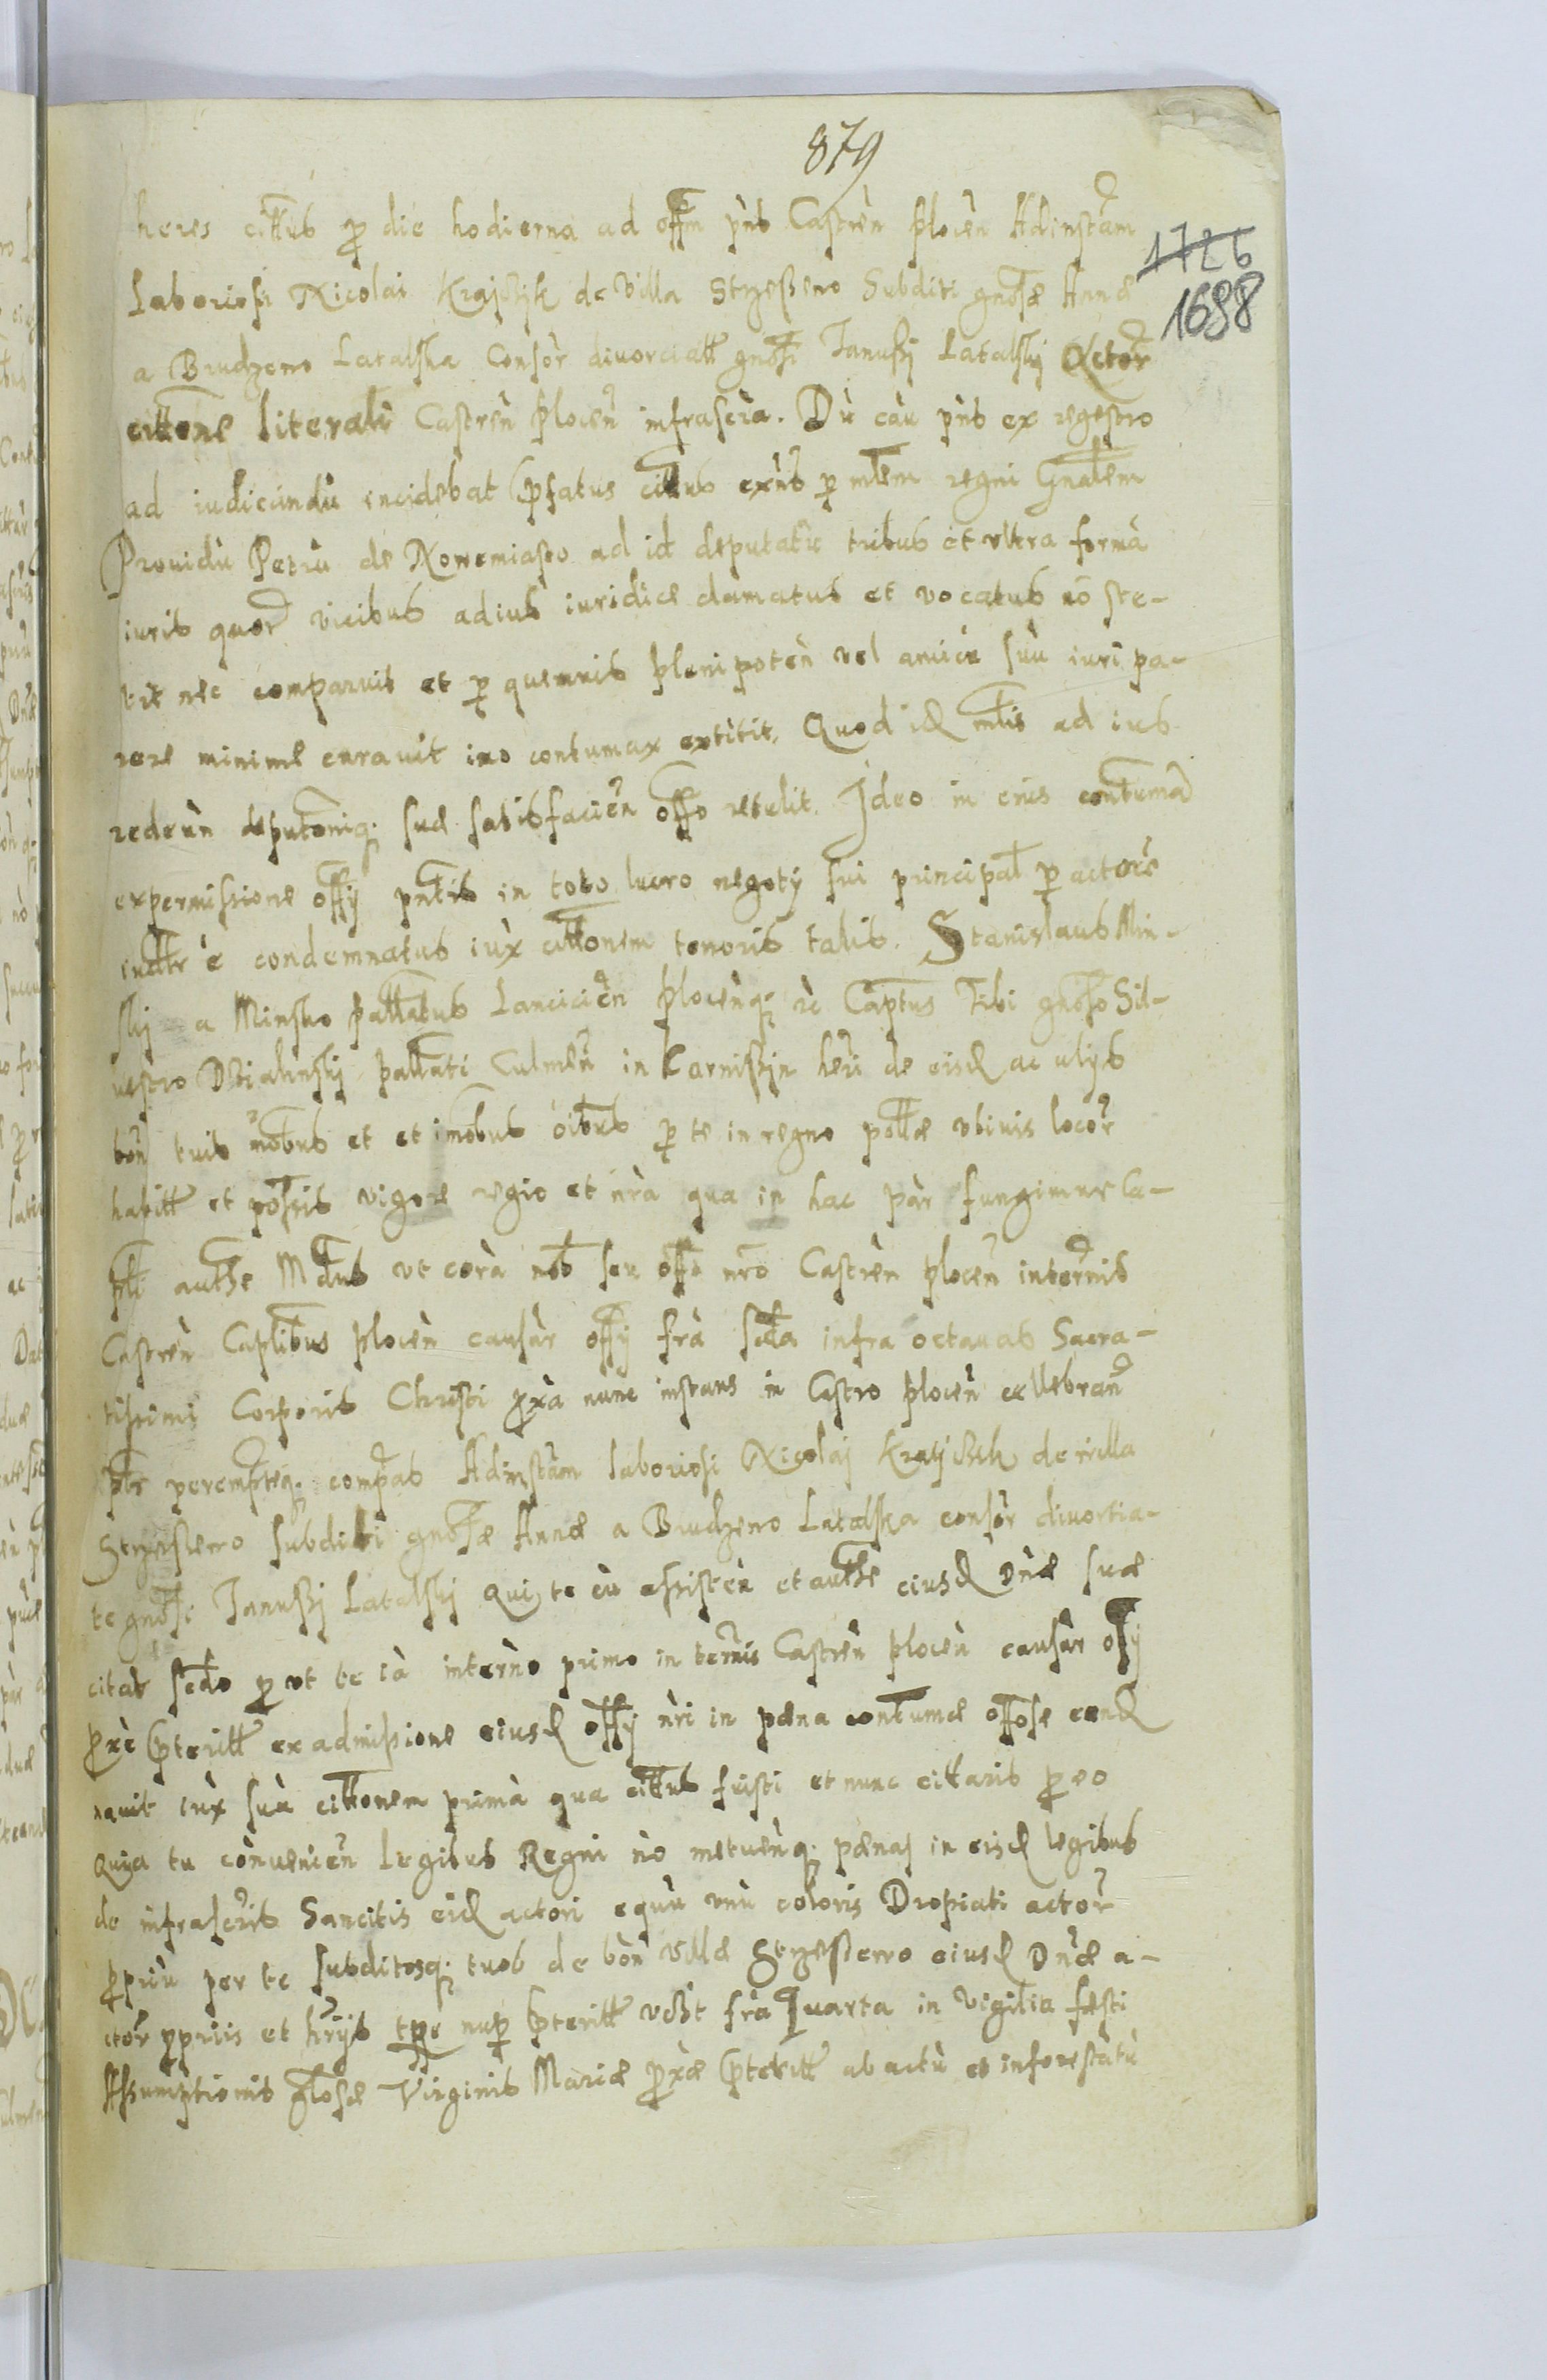 879
1726
1688
heres cittus p die hodierna ad offm pñs Castreñ Ploceñ Ad instam
Laboriosi Nicolai Krajczyk de Villa Strzeßewo Subditi gnosæ Annæ
a Brudzewo Latalska Consor diuorciatt gnosi Janußij Latalskj Actor
cittone literali Castreñ Ploceñ infrascra. Dũ cau pñs ex regestro
ad iudicandũ incidebat Pfatus cittus exñs p mlem regni Gnalem
Prouidũ Petrũ de Nowemiasto ad id deputatũ tribus et ultra formã
iuris quor vicibus ad ius iuridice clamatus et vocatus nõ ste-
tit nec comparuit et p quemuis plenipoteñ vel amicũ suũ iuri pa-
rere minime curauit imo contumax extitit. Quod id mlis ad ius
redeuñ deputoniq; suæ satisfacieñ offo retulit. Ideo in eius contuma
ex permissione offij pntis in toto lucro negotij sui principal p actorẽ
indtr è condemnatus iux cittonem tenoris talis. Stanislaus Min-
skj a Minsko pallatus Lancicieñ Ploceñq; rè Captus Tibi gnoso Sil-
uestro Dzialinskj pallati Culmeñ in Karnißyn heri de eisd ac alijs
boñ tuis mobus et et imobus oibus p te in regno pollæ vbiuis locor
habitt et possis vigore regio et nrã qua in hac par fungimur Ca-
pli authe Mdus vt corã nob seu offo nro Castreñ Ploceñ in termis
Castreñ Caplibus Ploceñ causar offij frã scda infra octauas Sacra-
tissimi Corporis Christi proxã nunc instans in Castro Ploceñ cellebran
pltr peremptieq; compas Ad instam laboriosi Nicolaj Kratjczik de villa
Strzeslewo subditi gnosæ Annæ a Brudzewo Latalska consor diuortia-
te gnosi Janußj Latalskj Qui te cũ assisteñ et authe eiusd Dñæ suæ
citat scdo p vt te iã in termo primo in termis Castreñ Ploceñ causar offij
proxè Pteritt ex admissione eiusd offij nri in pæna contumæ offose cond
nauit iux suã cittonem primã qua cittus fuisti et nunc cittaris p eo
Quia tu conueniẽn Legibus Regni nõ metuenq; pænas in eisd legibus
de infrascris Sancitis eid actori equũ vnũ coloris Dropiati actor
propriũ per te subditosq; tuos de boñ villæ Strzeßewo eiusd Dnæ a-
ctor propriis et hrijs tpe nup Pteritt vczt frã Quarta in Vigilia festi
Assumptionis glosæ Virginis Mariæ proxæ Pteritt ab actũ et inforestatũ